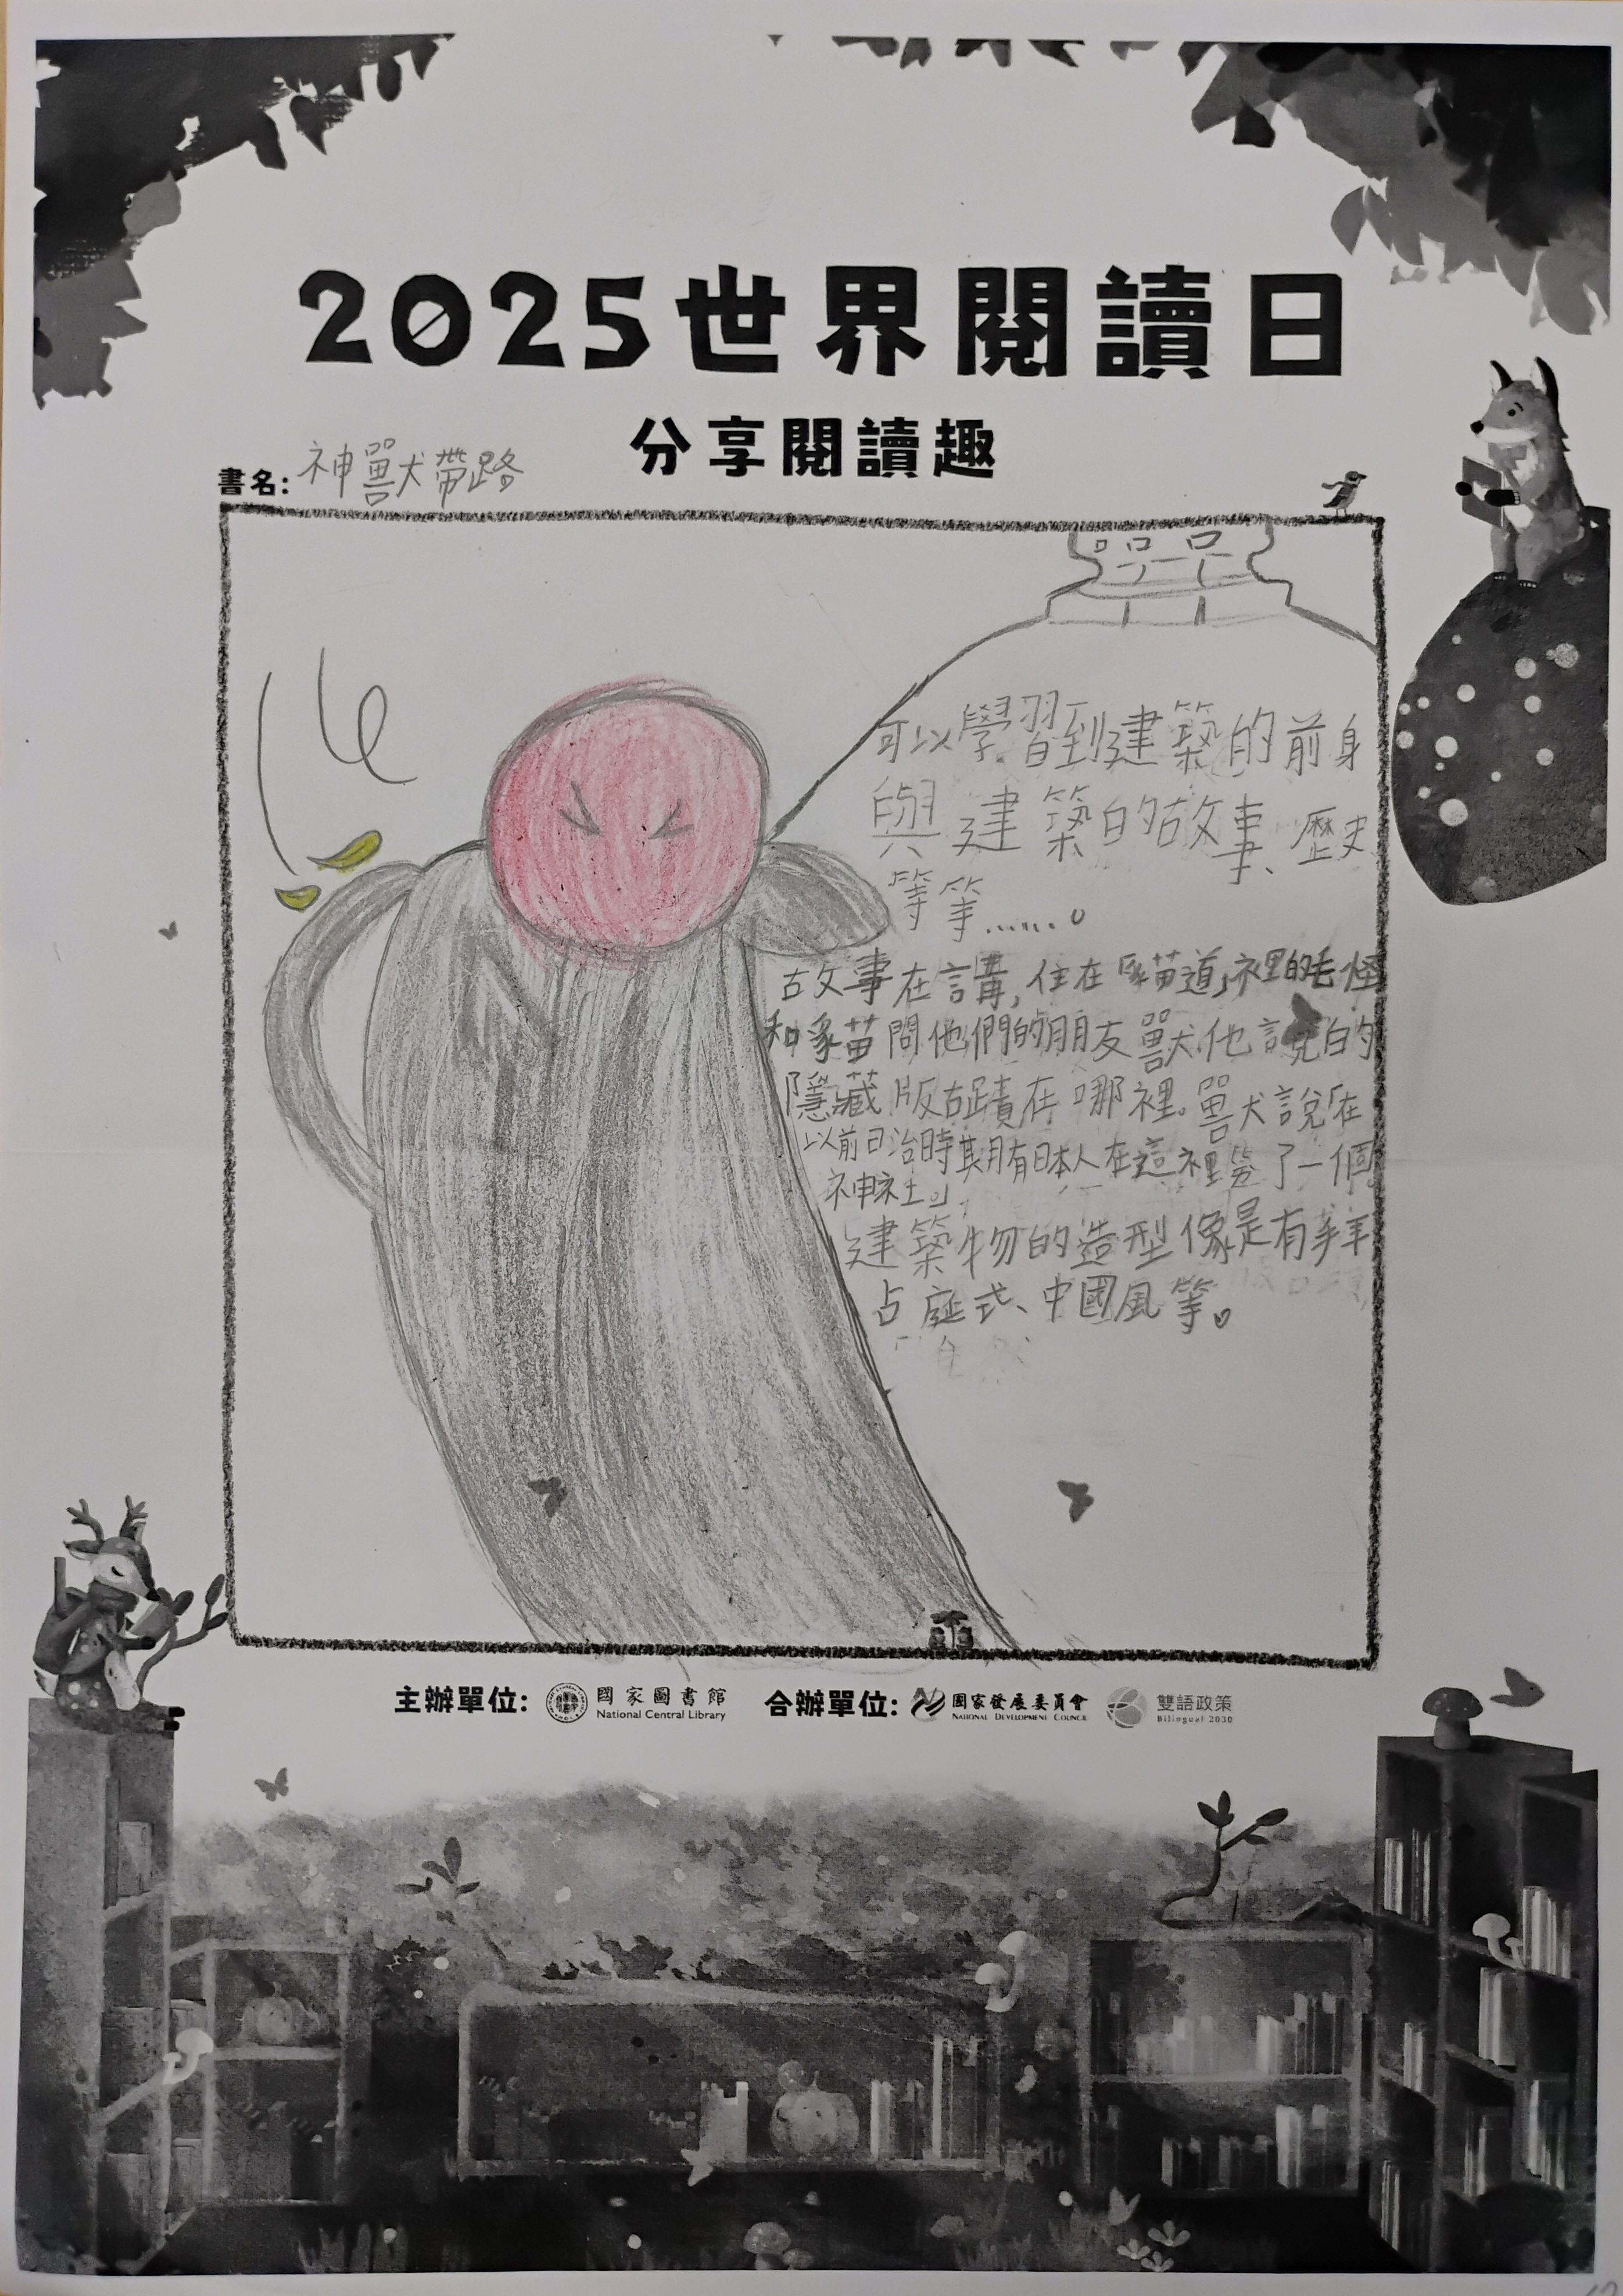 2025世界閱讀日
分享閱讀趣
書名：神獸帶路
可以學習到建築的前身
與建築的故事、歷史
等等……。
故事在講，住在「豸苗道」裡的毛怪
和豸苗問他們的朋友獸他說的
隱藏版古蹟在哪裡。獸說「在
以前日治時期有日本人在這裡築了一個
神社。」
建築物的造型像是有拜
占庭式、中國風等。
主辦單位： 國家圖書館 National Central Library 合辦單位： 國家發展委員會 NATIONAL DEVELOPMENT COUNCIL 雙語政策 Bilingual 2030